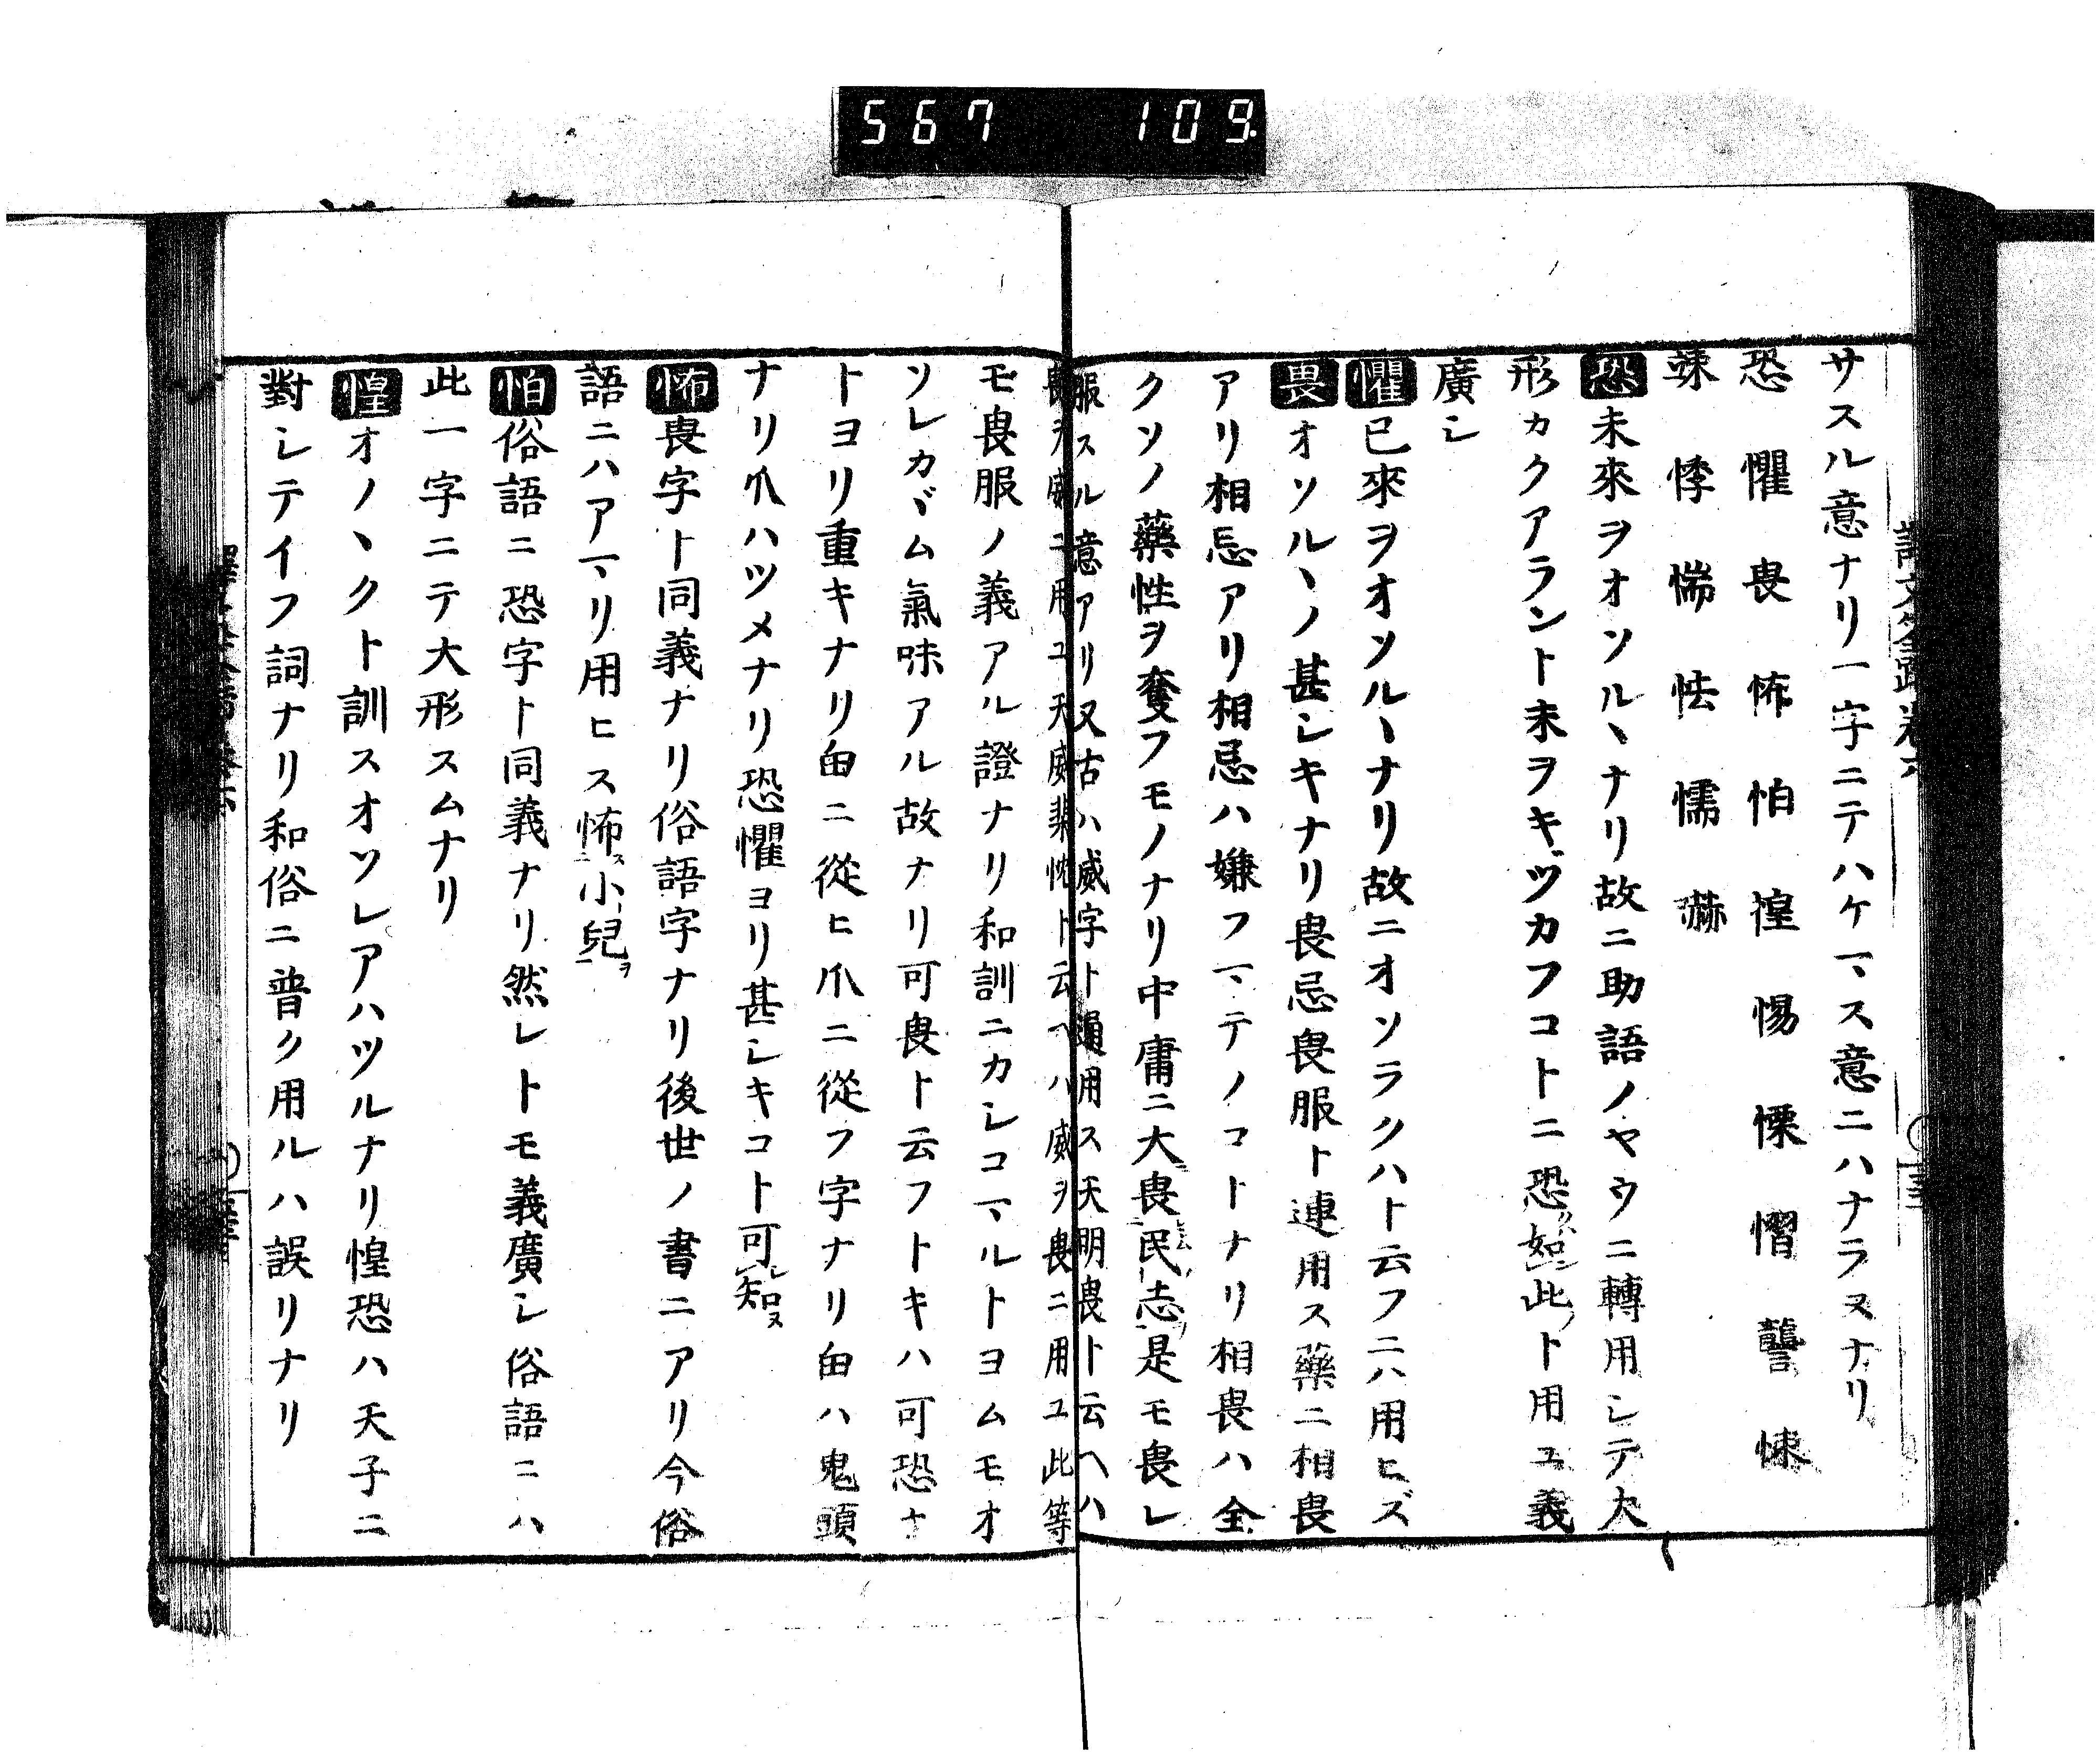 567 109.
サスル意ナリ一字ニテハケヽス意ニハナラヌナリ
恐 懼 畏 怖 怕 惶 惕 慄 慴 讋 悚
竦 悸 惴 怯 懦 嚇
恐未來ヲオソルヽナリ故ニ助語ノヤウニ轉用シテ大
形カクアラント未ヲキヅカフコトニ恐クハ如レ此ト用ユ義
廣シ
懼已來ヲオソルヽナリ故ニオソラクハト云フニハ用ヒズ
畏オソルヽノ甚シキナリ畏忌畏服ト連用ス藥ニ相畏
アリ相忌アリ相忌ハ嫌フヿ、テノコトナリ相畏ハ全
クソノ藥性ヲ奪フモノナリ中庸ニ大畏民志是モ畏レ
服スル意アリ又古ハ威字ト通用ス天明畏ト云ヘハ
畏ヲ威ニ用ユ天威棐忱ト云ヘハ威ヲ畏ニ用ユ此等
モ畏服ノ義アル證ナリ和訓ニカシコマルトヨムモオ
ソレカヾム氣味アル故ナリ可畏ト云フトキハ可恐ナ
トヨリ重キナリ甶ニ從ヒ爪ニ從フ字ナリ甶ハ鬼頭
ナリ爪ハツメナリ恐懼ヨリ甚シキコト可レ知ヌ
怖畏字ト同義ナリ俗語字ナリ後世ノ書ニアリ今俗
語ニハアマリ用ヒス怖ス小兒ヲ
怕俗語ニ恐字ト同義ナリ然レトモ義廣シ俗語ニハ
此一字ニテ大形スムナリ
惶オノヽクト訓スオソレアハツルナリ惶恐ハ天子ニ
對シテイフ詞ナリ和俗ニ普ク用ルハ誤リナリ